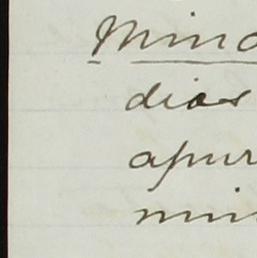 Mino
dias
apur
min